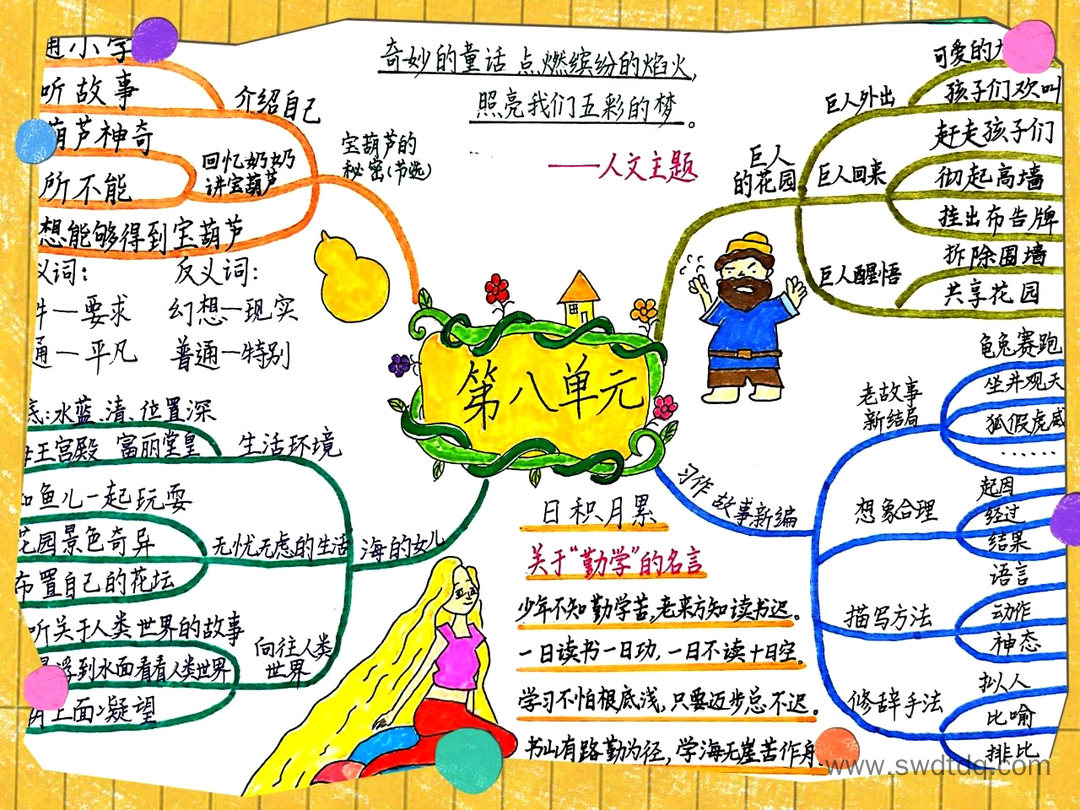 奇妙的童话点燃缤纷的焰火,
照亮我们五彩的梦。
——人文主题
第八单元
宝葫芦的
秘密(节选)
介绍自己
小字
听故事
回忆奶奶
讲宝葫芦
葫芦神奇
所不能
想能够得到宝葫芦
义词:
反义词:
一要求
幻想一现实
通一平凡
普通一特别
海的女儿
生活环境
底:水蓝、清、位置深
王宫殿 富丽堂皇
无忧无虑的生活
和鱼儿一起玩耍
花园景色奇异
布置自己的花坛
向往人类
世界
听关于人类世界的故事
浮到水面看看人类世界
上面凝望
巨人
的花园
巨人外出
可爱的
孩子们欢叫
巨人回来
赶走孩子们
彻起高墙
挂出布告牌
巨人醒悟
拆除围墙
共享花园
习作 故事新编
老故事
新结局
龟兔赛跑
坐井观天
狐假虎威
……
想象合理
起因
经过
结果
描写方法
语言
动作
神态
修辞手法
拟人
比喻
排比
日积月累
关于“勤学”的名言
少年不知勤学苦,老来方知读书迟。
一日读书一日功,一日不读十日空。
学习不怕根底浅,只要迈步总不迟。
书山有路勤为径,学海无崖苦作舟
www.swdtdq.com